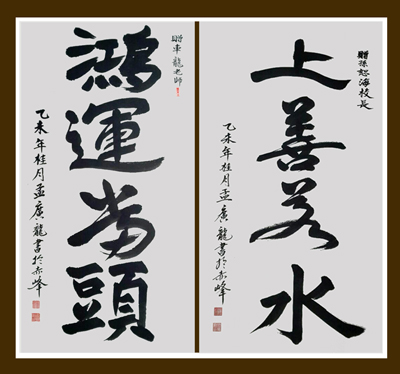 贈孫恕海校長
上善若水
乙未年桂月孟廣龍書於赤峰
贈車龍老師
鴻運當頭
乙未年桂月孟廣龍書於赤峰